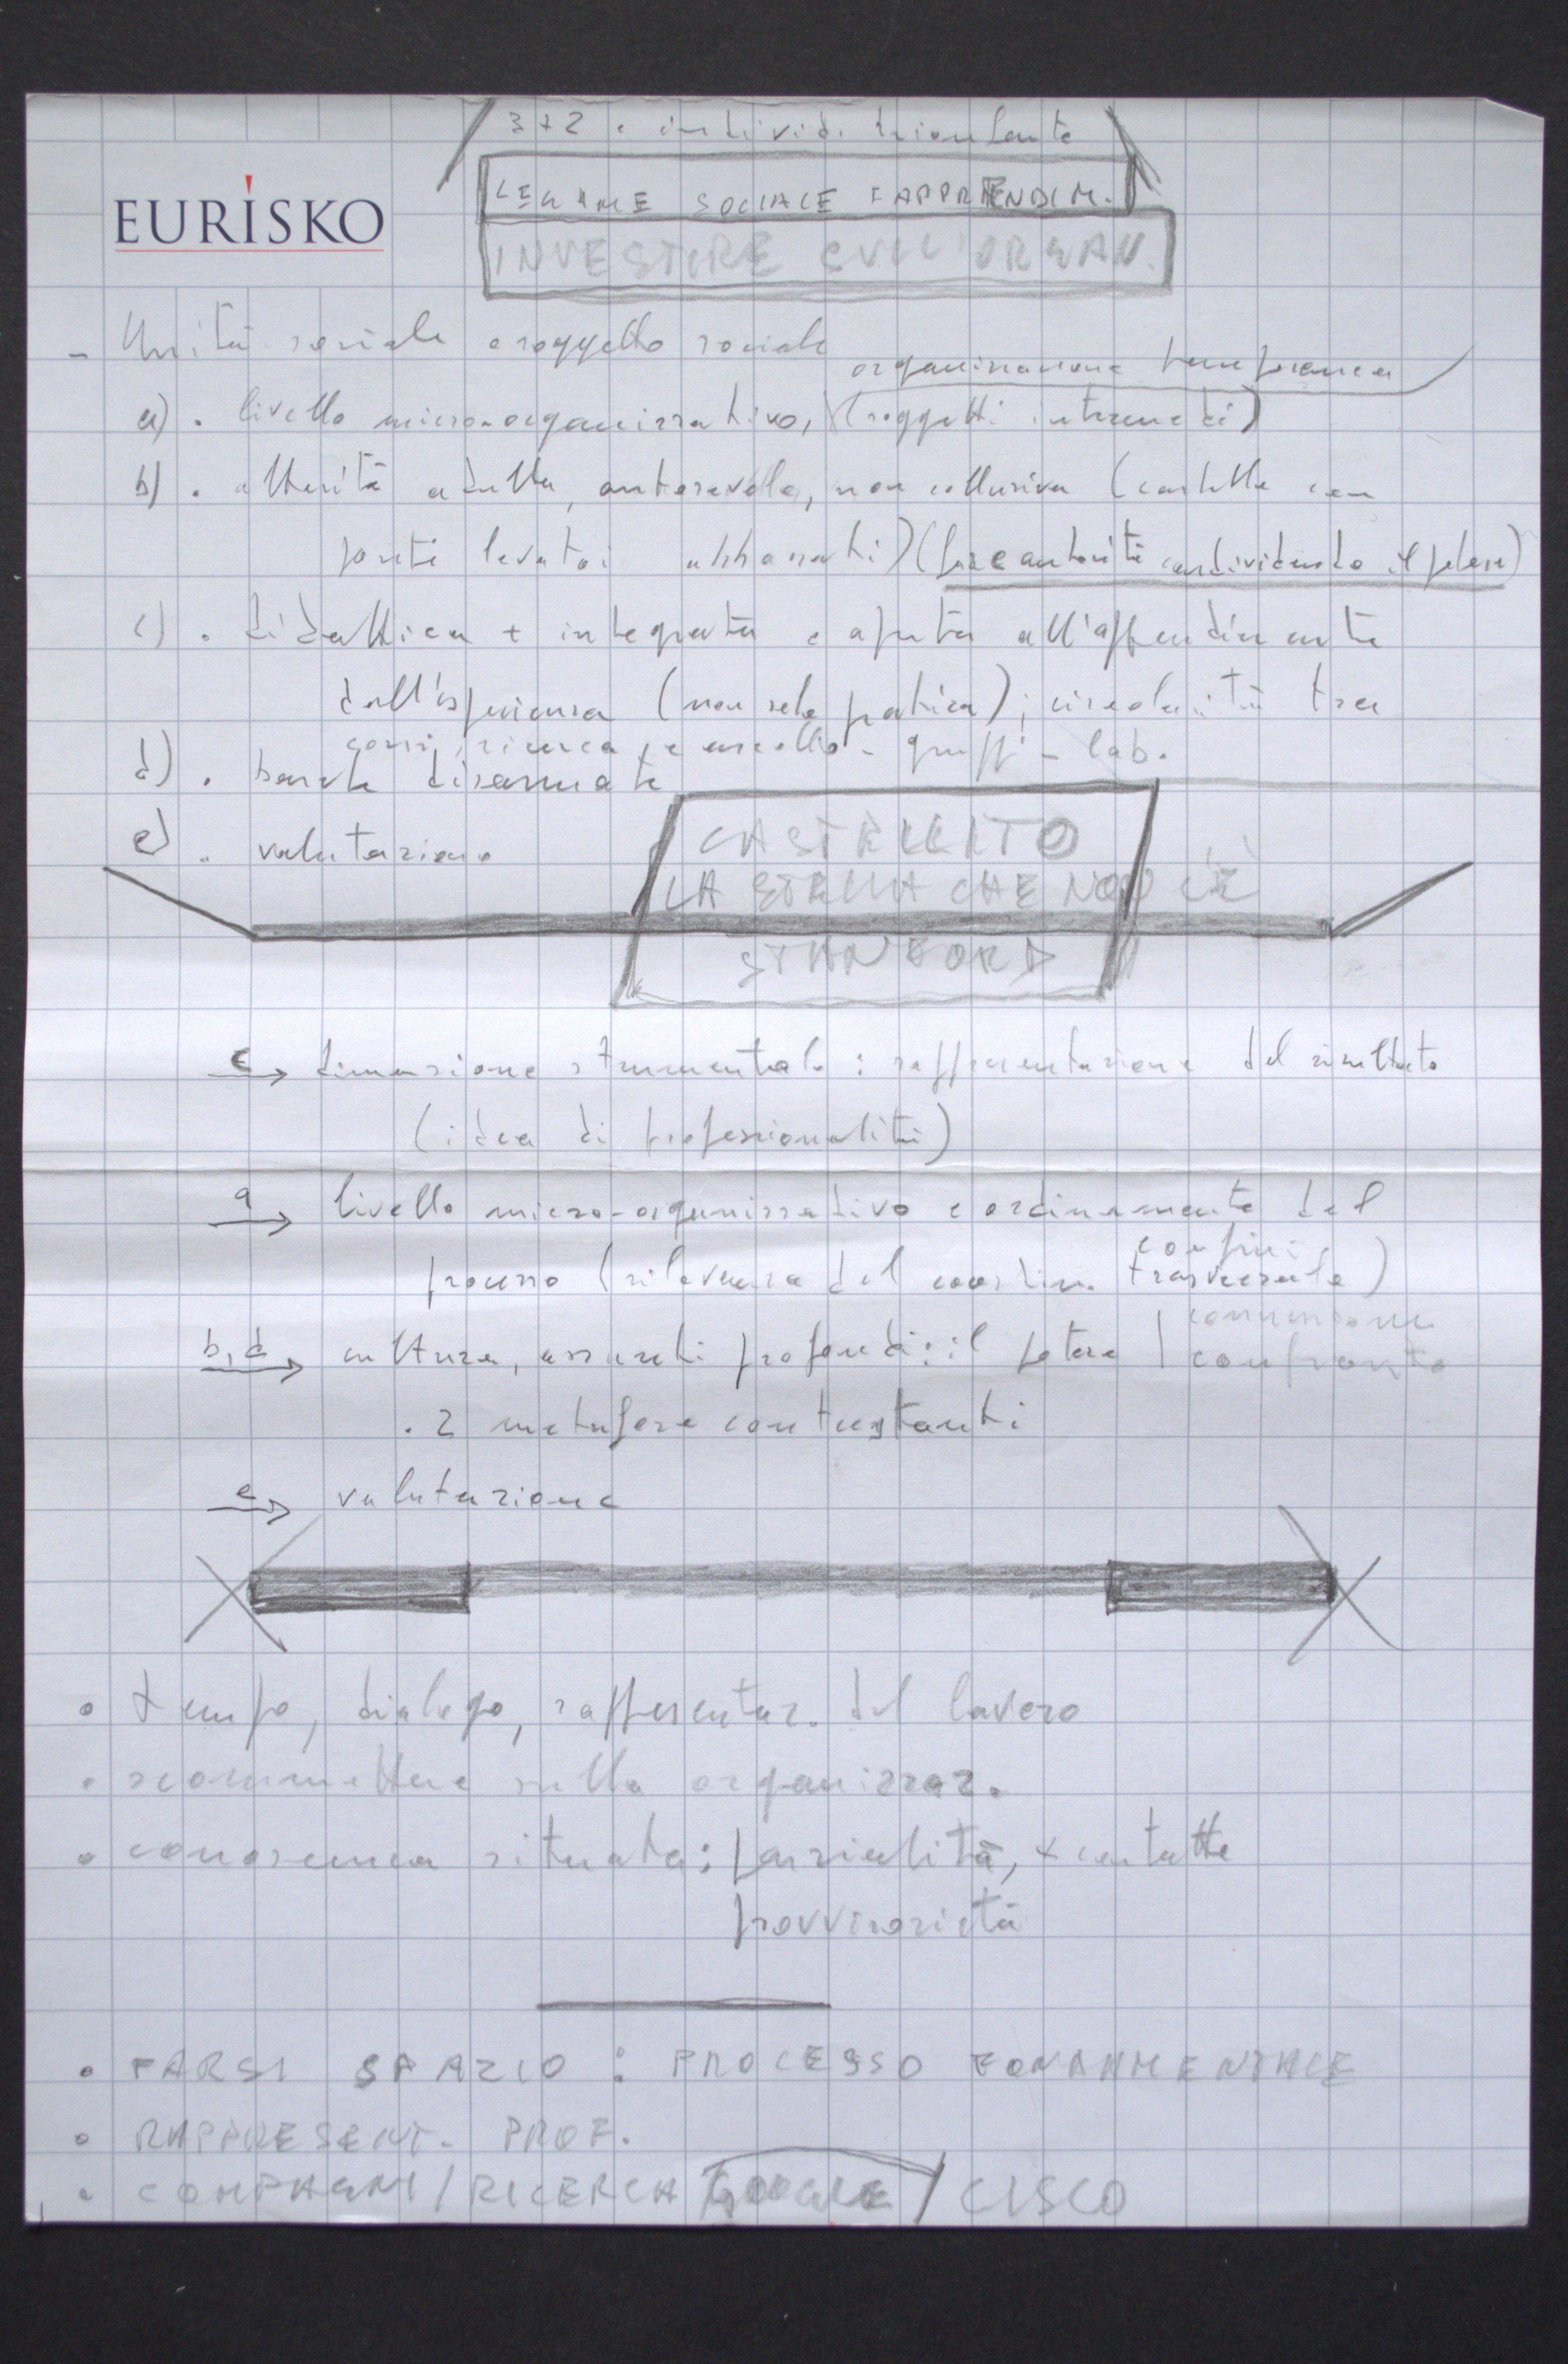 3+2 e individ. trionfante
EURISKO
LEGAME SOCIALE E APPRENDIM.
INVESTIRE SULL'ORGAN.
- Unità sociale e soggetto sociale
organizzazione
a) . livello micro-organizzativo, (soggetti intermedi)
b) . alterità adulta, autorevole, non collusiva (castello con
ponti levatoi abbassati) (fare autorità condividendo il potere)
c) . didattica + integrata e aperta all'apprendimento
dall'esperienza (non solo pratica); circolarità tra
corsi, ricerca, e ascolto - gruppi - lab.
d) . disarmate
e) . valutazione
CASTELLITO
LA STELLA CHE NON C'È
STANFORD
c → dimensione strumentale: rappresentazione del risultato
(idea di professionalità)
a → livello micro-organizzativo e ordinamento del
confini
processo (rilevanza del coordin. trasversale)
connessione
b, d → cultura, assunti profondi: il potere | confronto
. 2 metafore contrastanti
e → valutazione
• tempo, dialogo, rappresentaz. del lavoro
• scommettere sulla organizzaz.
• conoscenza situata: parzialità, + contatto
provvisorietà
• FARSI SPAZIO: PROCESSO FONDAMENTALE
• RAPPRESENT. PROF.
• COMPAGNI / RICERCA GOOGLE / CISCO